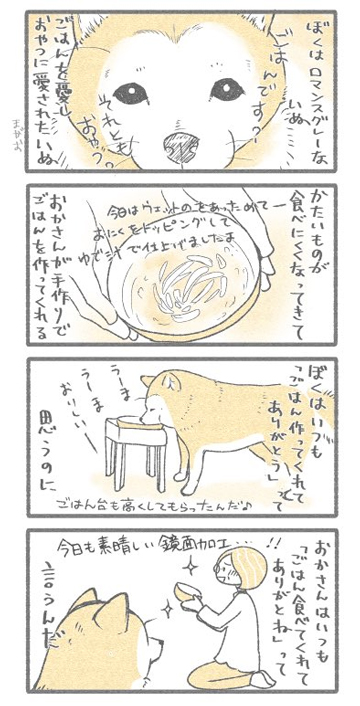 ぼくはロマンスグレーな
いぬ
ごはんです?
それとも
おやつ?
ごはんを愛し
おやつに愛されたいぬ
まがお
かたいものが
食べにくくなってきて
今日はウェットのをあっためてー
おにくをトッピングして
ゆで汁で仕上げましたよ
おかさんが手作りで
ごはんを作ってくれる
ぼくはいつも
「ごはん作ってくれて
ありがとう」って
うーま
うーま
おいしい
思うのに
ごはん台も高くしてもらったんだ♪
おかさんはいつも
「ごはん食べてくれて
ありがとね」って
今日も素晴しい鏡面加工…!!
言うんだ